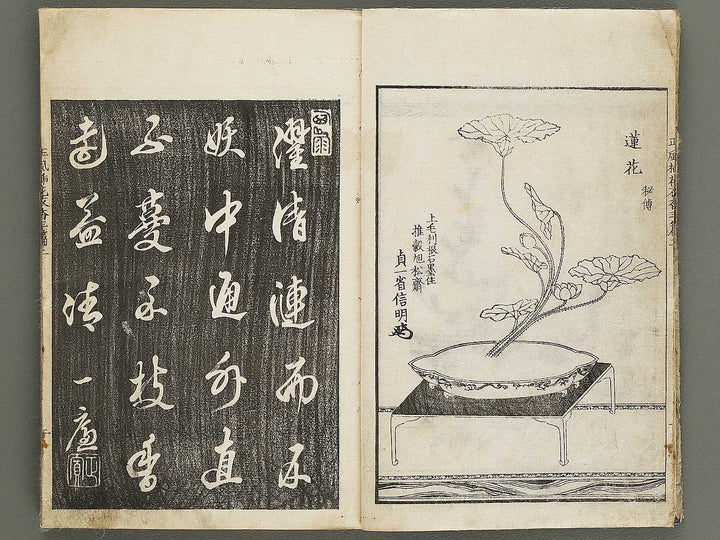 蓮花
秘傳
上毛利根石墨住
推轂旭松齋
貞一省信明
濯清漣而不
妖中通外直
不蔓不枝香
遠益清 一廬